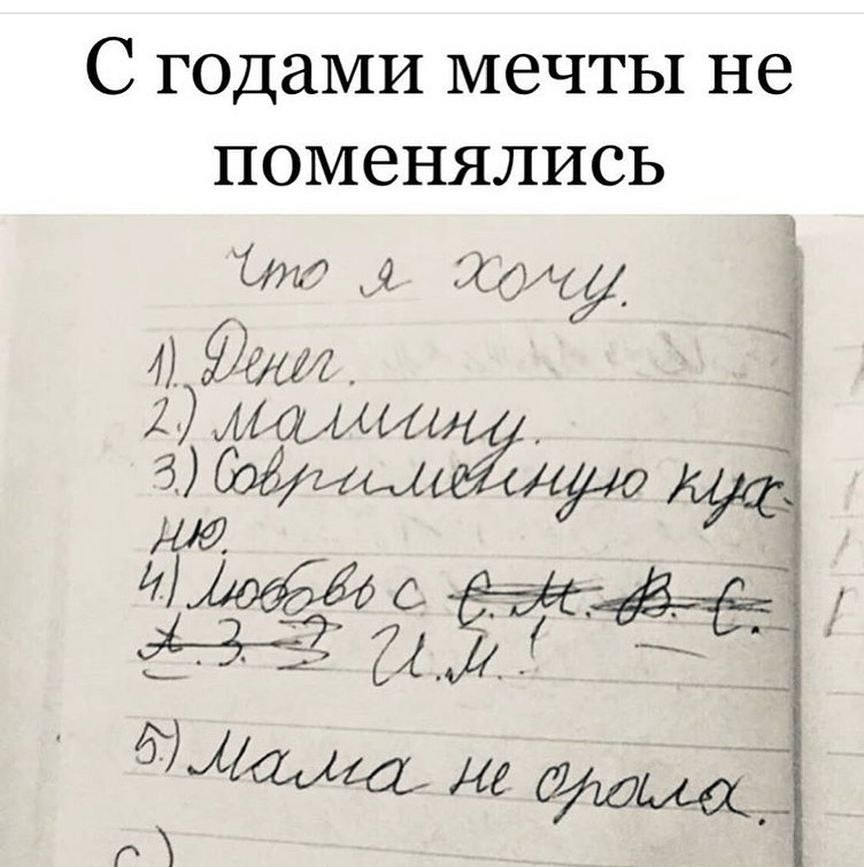 С годами мечты не
поменялись
Что я хочу.
1). Денег.
2.) Машину.
3.) Совримённую кух-
ню.
4.) Любовь с С. М. В. С.
А. З. З И.М.!
5.) Мама не орала.